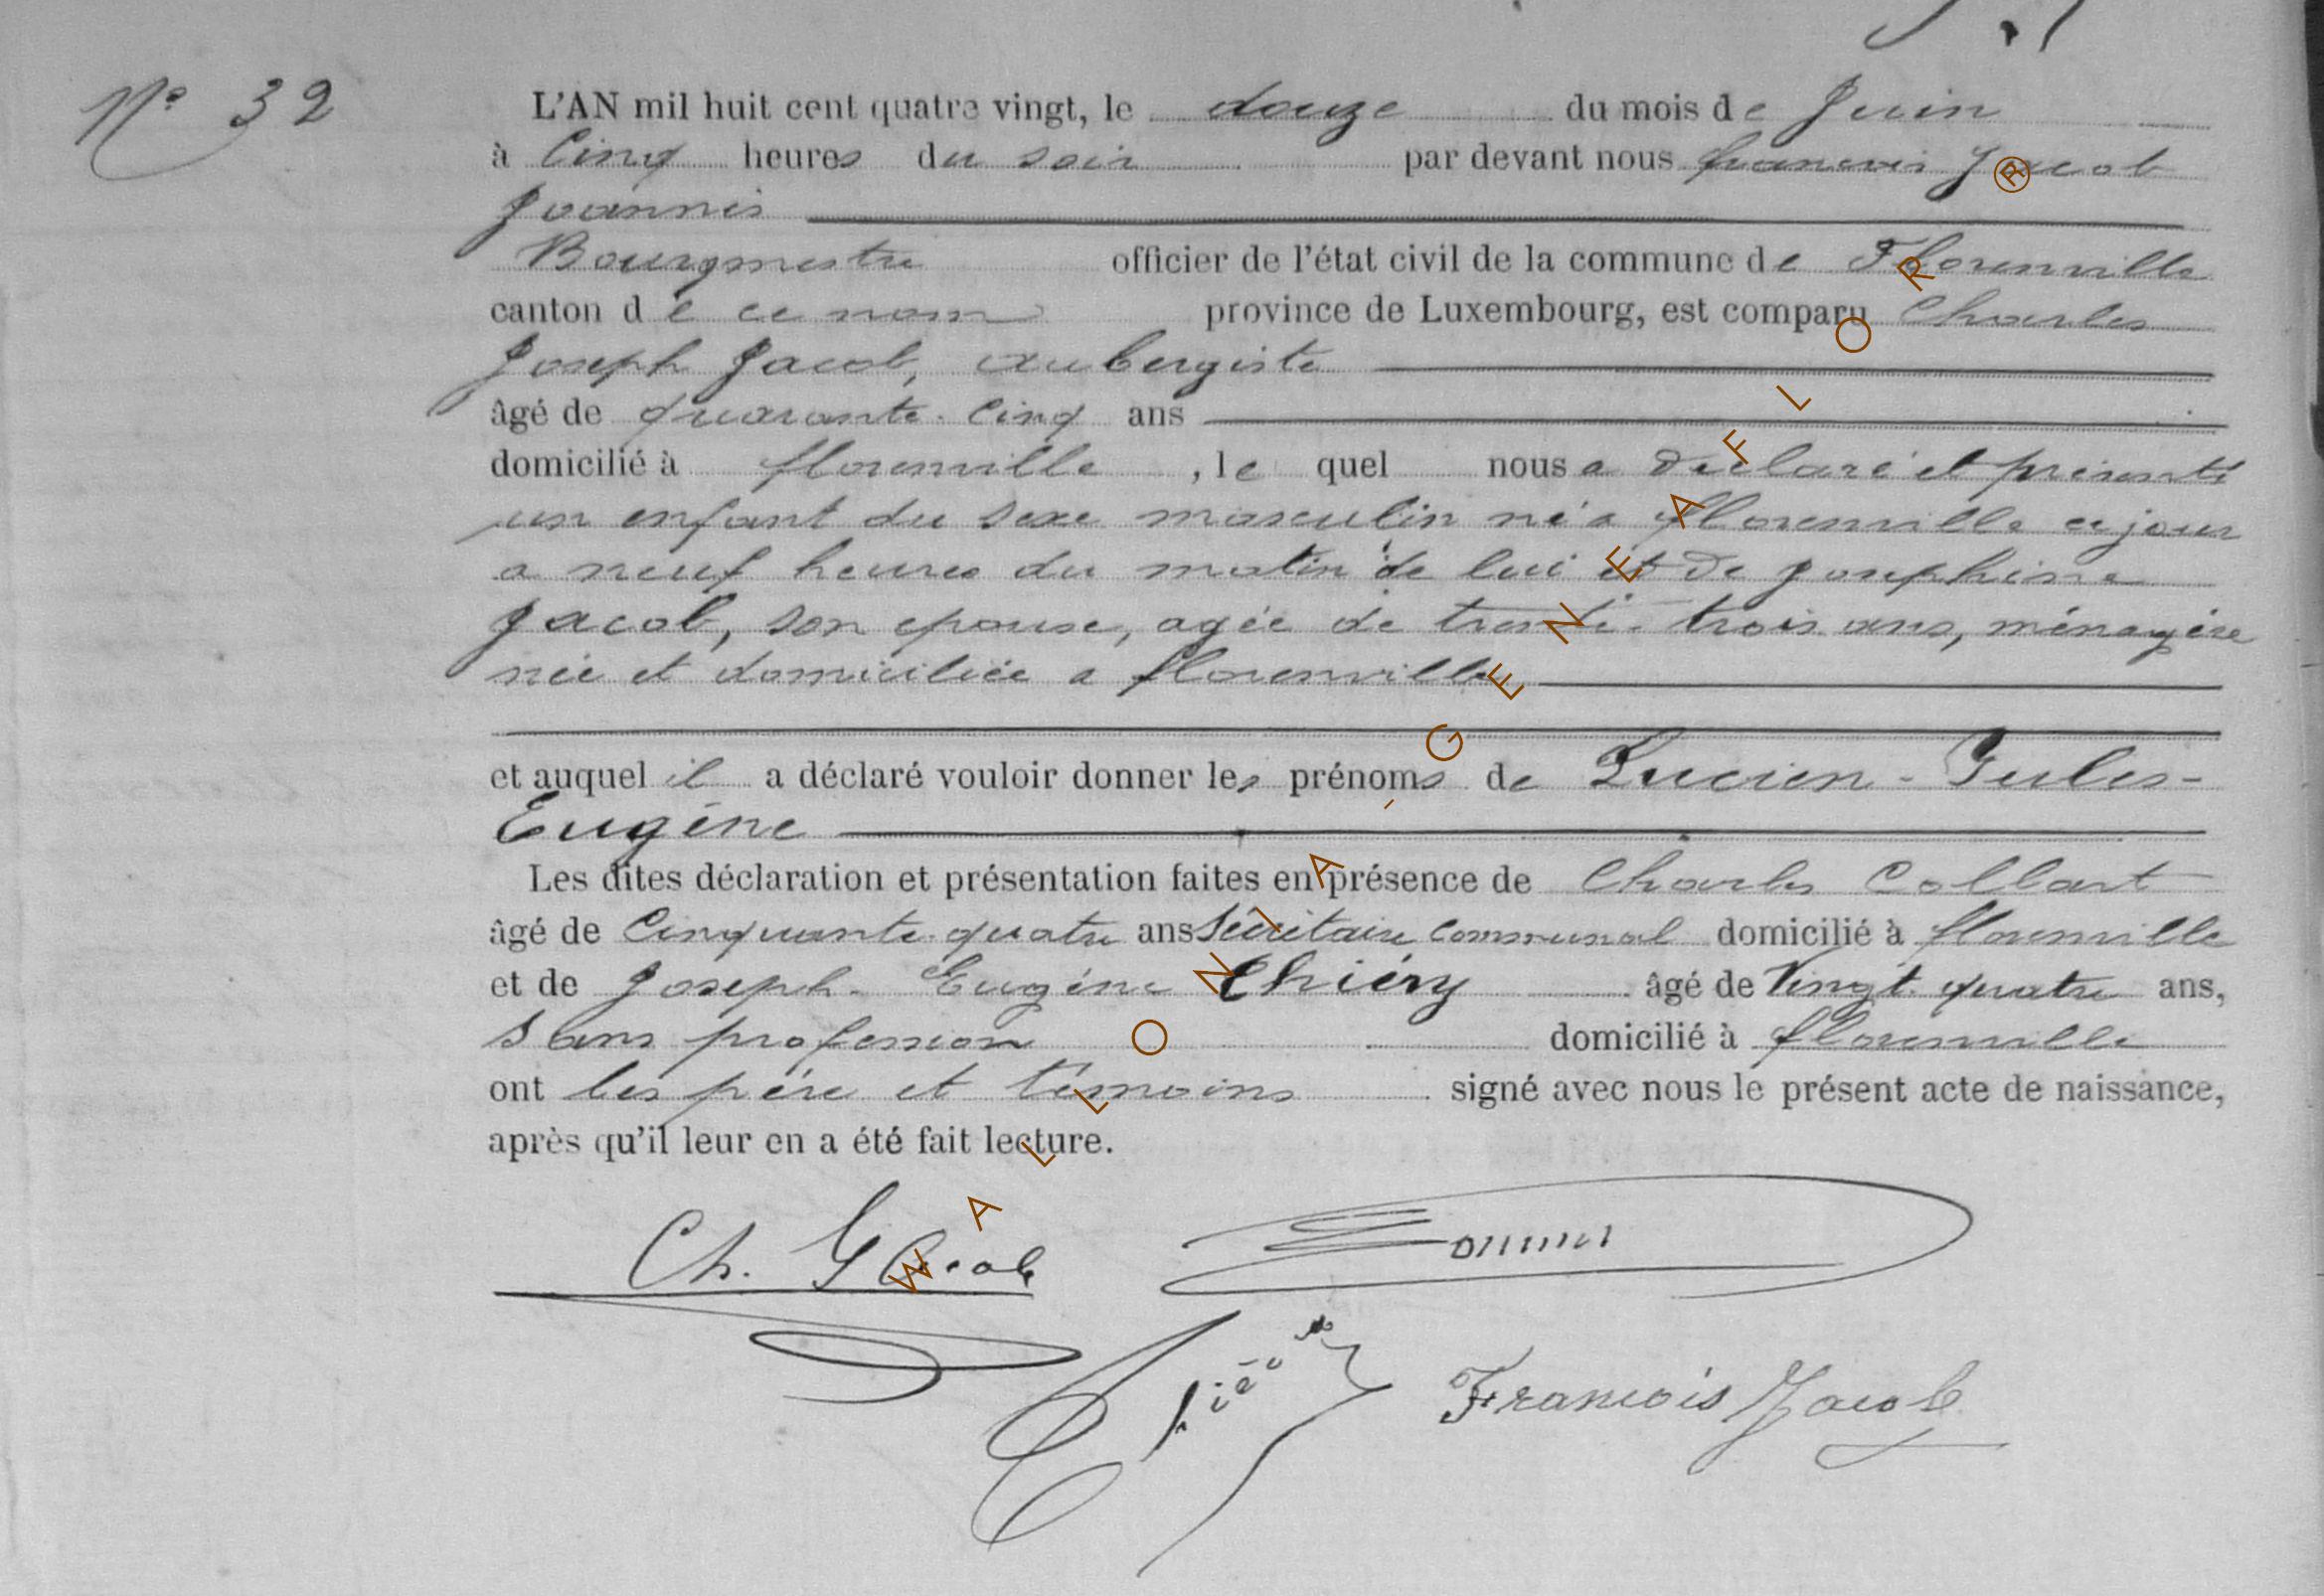 N° 32
L'AN mil huit cent quatre vingt, le douze du mois de Juin
à Cinq heures du soir par devant nous francois Jacob
Joannis
Bourgmestre officier de l'état civil de la commune de Florenville
canton de ce nom province de Luxembourg, est comparu Charles
Joseph Jacob, aubergiste
âgé de quarante-cinq ans
domicilié à florenville, le quel nous a déclaré et présenté
un enfant du sexe masculin né a florenville ce jour
a neuf heures du matin de lui et de Josephine
Jacob, son epouse, agée de trente-trois ans, ménagère
née et domiciliée a florenville
et auquel il a déclaré vouloir donner les prénoms de Lucien-Jules-
Eugène
Les dites déclaration et présentation faites en présence de Charles Collart
âgé de Cinquante-quatre ans Secrétaire Communal domicilié à florenville
et de Joseph-Eugène Thiéry âgé de Vingt-quatre ans,
sans profession domicilié à florenville
ont les père et témoins signé avec nous le présent acte de naissance,
après qu'il leur en a été fait lecture.
Ch. Jacob
Francois Jacob
WALLONIA - GENEAFLOR ®